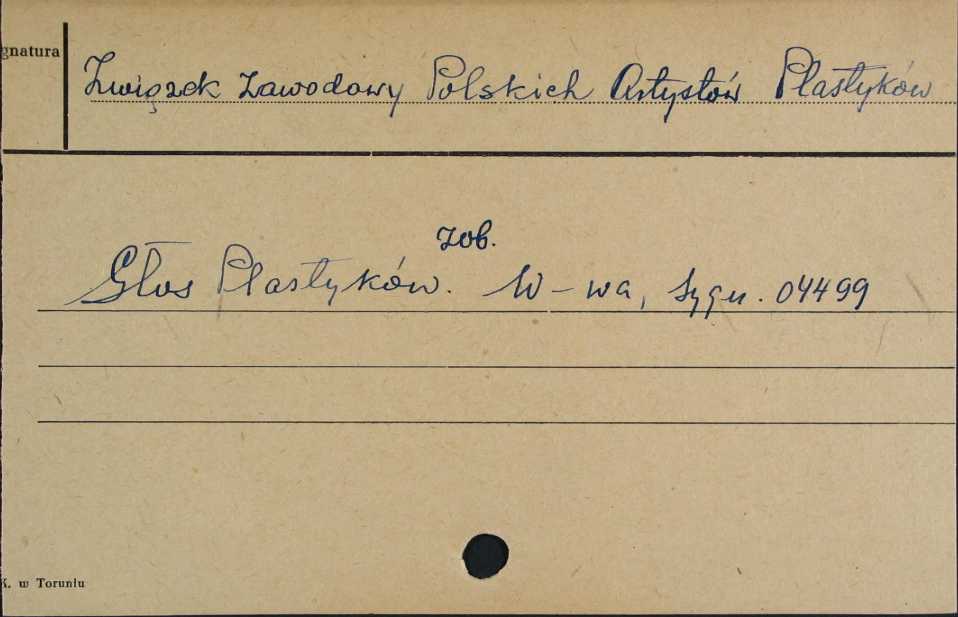 gnatura
Związek Zawodowy Polskich Artystów Plastyków
zob.
Głos Plastyków. W-wa, Sygn. 04499
K. w Toruniu